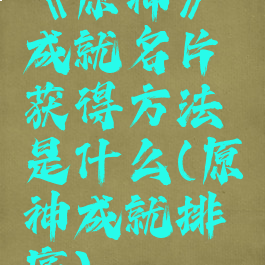 《原神》
成就名片
获得方法
是什么(原
神成就排